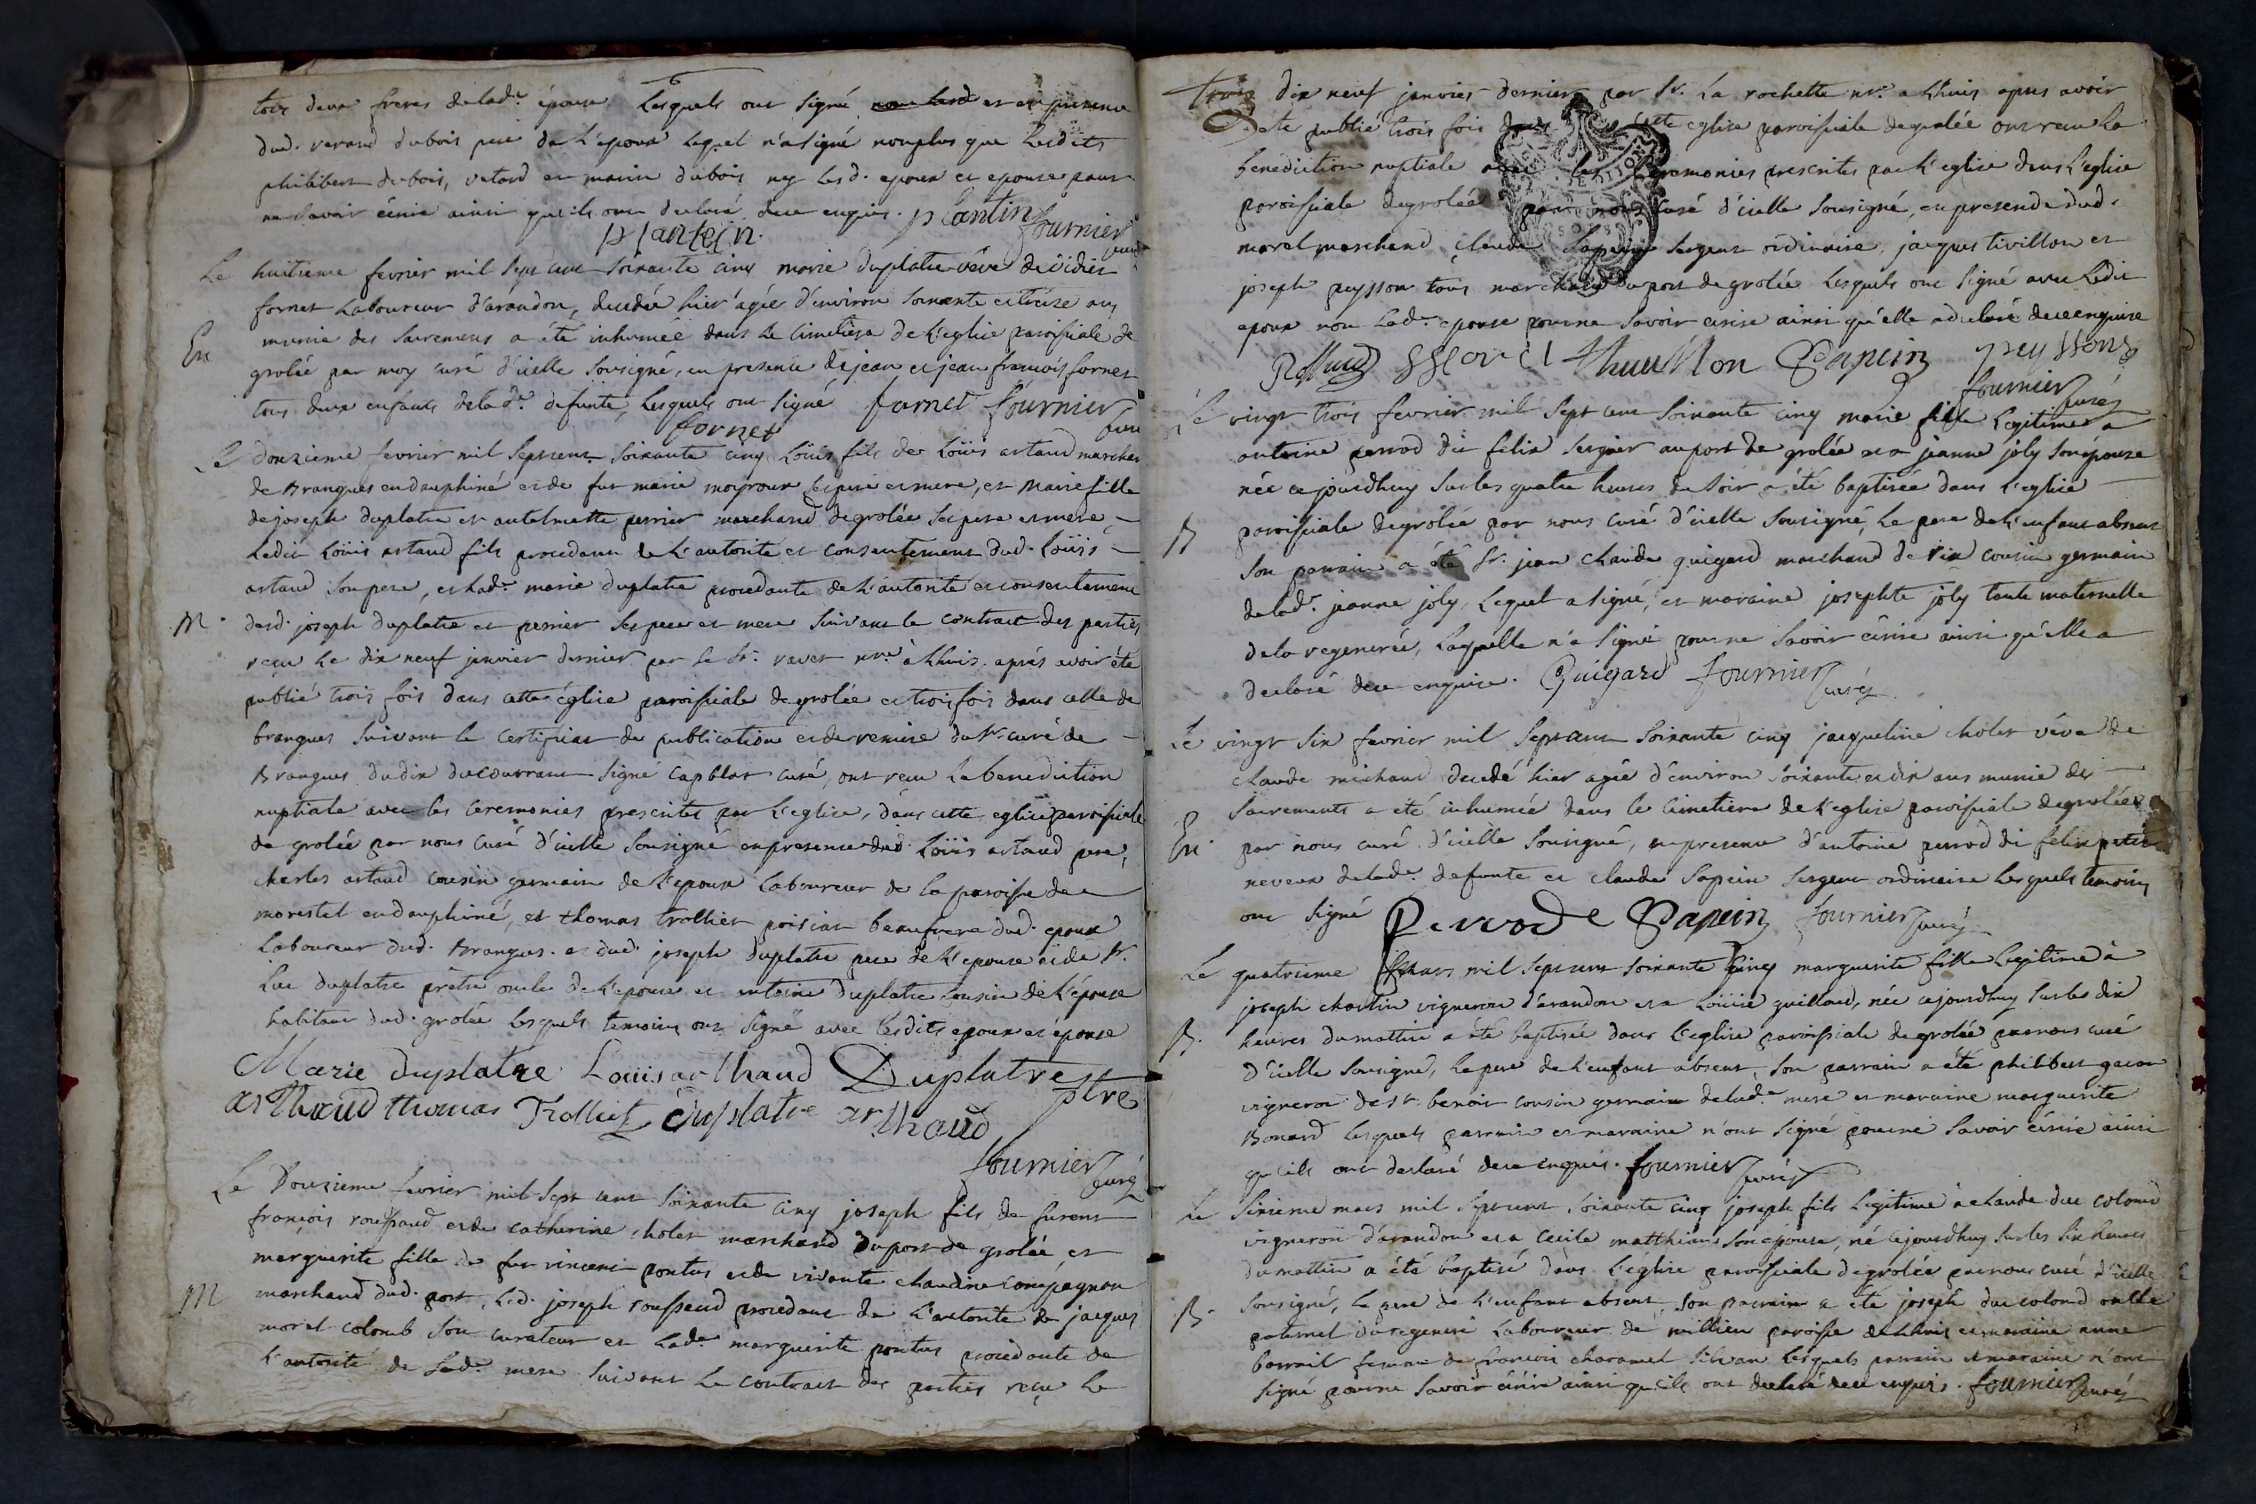 tous deux freres de lad.e épouse lesquels ont signé et en presence
dud. verand dubois pere de l'epoux lequel n'a signé non plus que lesdits
philibert dubois, et marin dubois ny les d. epoux et epouse pour
ne savoir écrire ainsi qu'ils ont declaré dece enquis. plantin fournier
plantein. curé
Le huitieme fevrier mil sept cent soixante cinq marie duplatre véve de didier
fornet laboureur d'arandon, decedée hier agée d'environ soixante et treize ans
En munie des sacremens a été inhumée dans le cimetiere de l'eglise paroissiale de
grolée par moy curé d'icelle sousigné, en presence de jean et jean francois fornet
tous deux enfants de lad.e defunte, lesquels ont signé fornet fournier
fornet curé
Le douzieme fevrier mil sept cent soixante cinq Loüis fils de Loüis artaud marchand
de Brangues en dauphiné et de fut marie moyroux ses pere et mere, et Marie fille
de joseph duplatre et antelmette perrier marchand de grolée ses pere et mere,
ledit Loüis artaud fils procedant de l'autorité et consentement dud. Loüis
artaud son pere, et lad.e marie duplatre procedante de l'autorité et consentement
M. desd. joseph duplatre et perrier ses pere et mere suivant le contract des parties
reçu le dix neuf janvier dernier par le Sr. ravet nre. à Lhuis. aprés avoir été
publié trois fois dans cette église paroissiale de grolée et trois fois dans celle de
brangues suivant le certificat de publication et de remise du Sr. curé de
Brangues du dix du courrant signé capblat curé, ont reçu la benediction
nuptiale avec les ceremonies prescrites par l'eglise, dans cette eglise paroissiale
de grolée par nous curé d'icelle sousigné en presence dud. Loüis artaud pere,
charles artaud cousin germain de l'epoux laboureur de la paroisse de
morestel en dauphiné, et thomas trolliet beaufrere dud. epoux
laboureur dud. Brangues. et dud. joseph duplatre pere de l'epouse et de Sr.
Luc duplatre prêtre oncle de l'epouse et antoine duplâtre cousin de l'épouse
habitant dud. grolée lesquels temoins ont signé avec lesdits epoux et épouse
Marie duplatre Loüis arthaud Duplatre ptre
arthaud thomas Trolliet duplatre arthaud
fournier curé
Le Douzieme fevrier mil sept cent soixante cinq joseph fils de furent
françois roussaud et de catherine cholet marchand du port de grolée et
marguerite fille de fut vincent pontus et de vivante claudine compagnon
M marchand dud. port, led. joseph roussaud procedant de l'autorité de jacques
morel colomb son curateur et lad.e marguerite pontus procedante de
l'autorité de sad.e mere suivant le contract des parties reçu le
trois dix neuf janvier dernier par Sr. La rochette nre. a Lhuis apres avoir
été publié trois fois dans cette eglise paroissiale de grolée ont reçu la
benediction nuptiale avec les ceremonies prescrites par l'eglise dans l'eglise
paroissiale de grolée par nous curé d'icelle sousigné, en presence dud.
morel marchand, claude Sapein sergent ordinaire, jacques tivillon et
joseph peysson tous marchands du port de grolée lesquels ont signé avec ledit
epoux non lad.e epouse pour ne savoir ecrire ainsi qu'elle a declaré dece enquise
Morel thuillion Sapein peyssons
fournier curé
Le vingt trois fevrier mil sept cent soixante cinq marie fille legitime a
antoine perrod dit felix sergier au port de grolée et a jeanne joly son épouse
née ce jourdhuy sur les quatre heures du soir a été baptisée dans l'eglise
B paroissiale de grolée par nous curé d'icelle sousigné, le pere de l'enfant absent
son parrain a été Sr. jean claude guigard marchand de cousin germain
de lad.e jeanne joly, lequel a signé, et maraine josephte joly tante maternelle
de la regenerée, laquelle n'a signé pour ne savoir écrire ainsi qu'elle a
declaré dece enquise. Guigard fournier curé
Le vingt six fevrier mil sept cent soixante cinq jacqueline cholet véve de
claude michaud decedé hier agée d'environ soixante et dix ans munie des
sacrements a été inhumée dans le cimetiere de l'eglise paroissiale de grolée
En. par nous curé d'icelle sousigné, en presence d'antoine perrod dit felix petit
neveux de lad.e defunte et claude Sapein sergent ordinaire lesquels temoins
ont signé Perrod Sapein fournier curé
Le quatrieme Mars mil sept cent soixante cinq marguerite fille legitime à
joseph chantin vigneron d'arandon et a Loüise guillaud, née cejourdhuy sur les dix
B. heures du mattin a été baptisée dans l'eglise paroissiale de grolée par nous curé
d'icelle sousigné, le pere de l'enfant absent, son parrain a été philibert gacon
vigneron de St. benoit cousin germain de lad.e mere et maraine marguerite
Bonard lesquels parrain et maraine n'ont signé pour ne savoir écrire ainsi
qu'ils ont declaré dece enquis. fournier curé
Le sixieme mars mil sept cent soixante cinq joseph fils legitime à claude duc colomb
vigneron d'arandon et a Cecile matthian son épouse, né cejourdhuy sur les six heures
du mattin a été baptisé dans l'eglise paroissiale de grolée par nous curé d'icelle
B. sousigné, le pere de l'enfant absent, son parrain a été joseph duc colomb oncle
paternel du regeneré laboureur de millieu paroisse de Lhuis et maraine anne
femme de francois charamel lesquels parrain et maraine n'ont
signé pour ne savoir écrire ainsi qu'ils ont declaré dece enquis. fournier curé